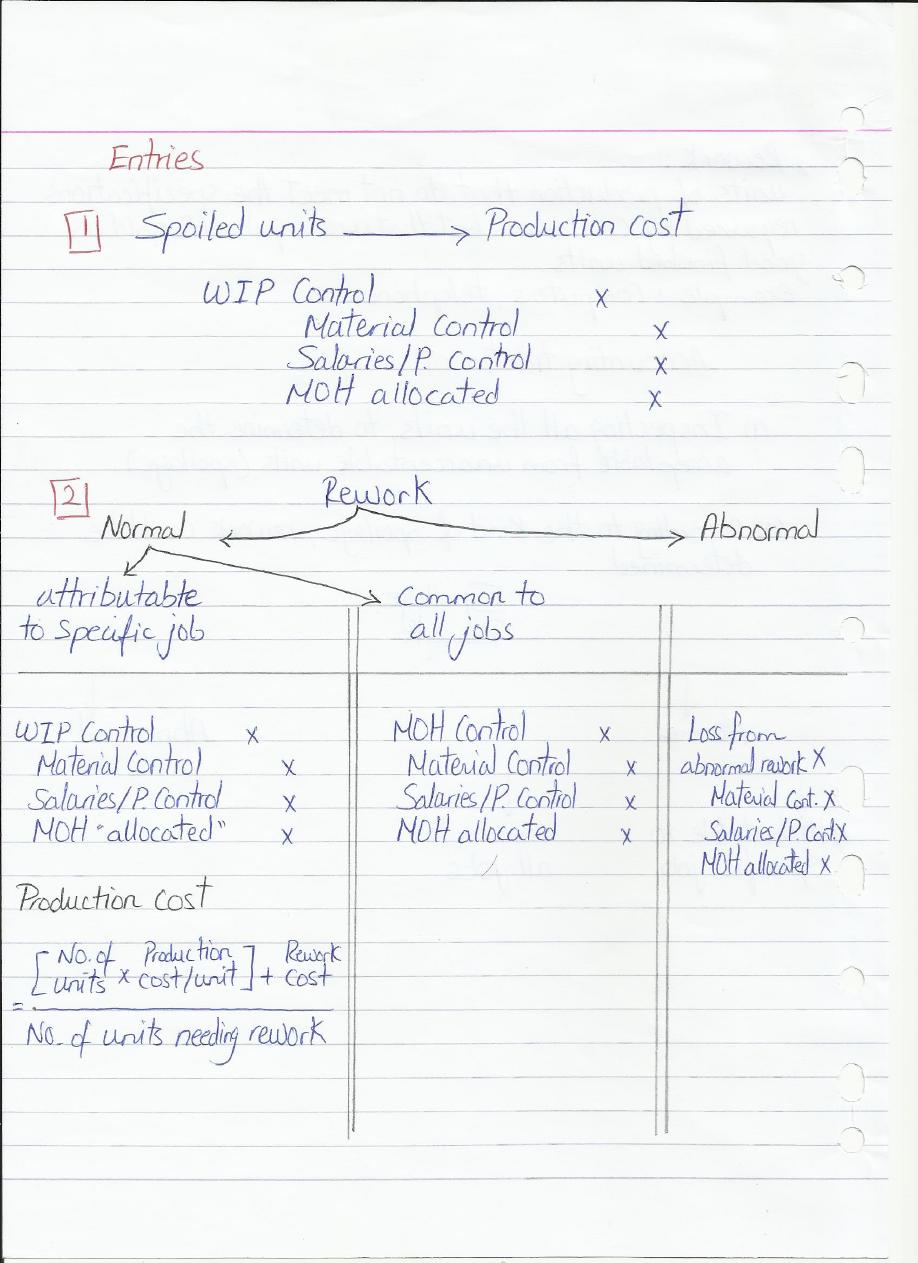 Entries
1 Spoiled units → Production cost
WIP Control X
Material Control X
Salaries/P. Control X
MOH allocated X
2 Rework
Normal Abnormal
attributable
to specific job
Common to
all jobs
WIP Control X
Material Control X
Salaries/P. Control X
MOH "allocated" X
Production cost
[No. of units × Production cost/unit] + Rework cost
=
No. of units needing rework
MOH Control X
Material Control X
Salaries/P. Control X
MOH allocated X
Loss from
abnormal rework X
Material Cont. X
Salaries/P. Cont. X
MOH allocated X